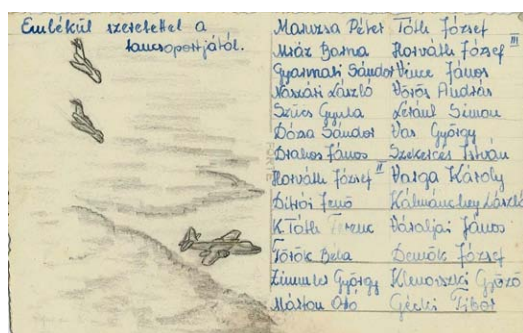 Emlékül szeretettel a
tancsoportjától.
Maruzsa Péter
Mráz Barna
Gyarmati Sándor
László
Szücs Gyula
Dózsa Sándor
Drahos János
Horváth József II
Jenő
K Tóth Ferenc
Török Béla
György
Márton Ottó
Tóth József
Horváth József III
Vincze János
Vörös András
Simon
Vas György
Szekeres István
Varga Károly
Kálmánchey László
Váraljai János
Demők József
Győző
Tibor